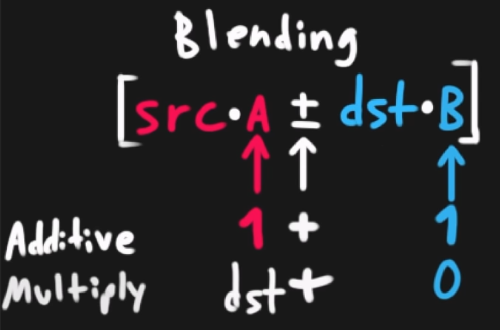 Blending
[src·A ± dst·B]
↑ ↑ ↑
Additive 1 + 1
Multiply dst + 0